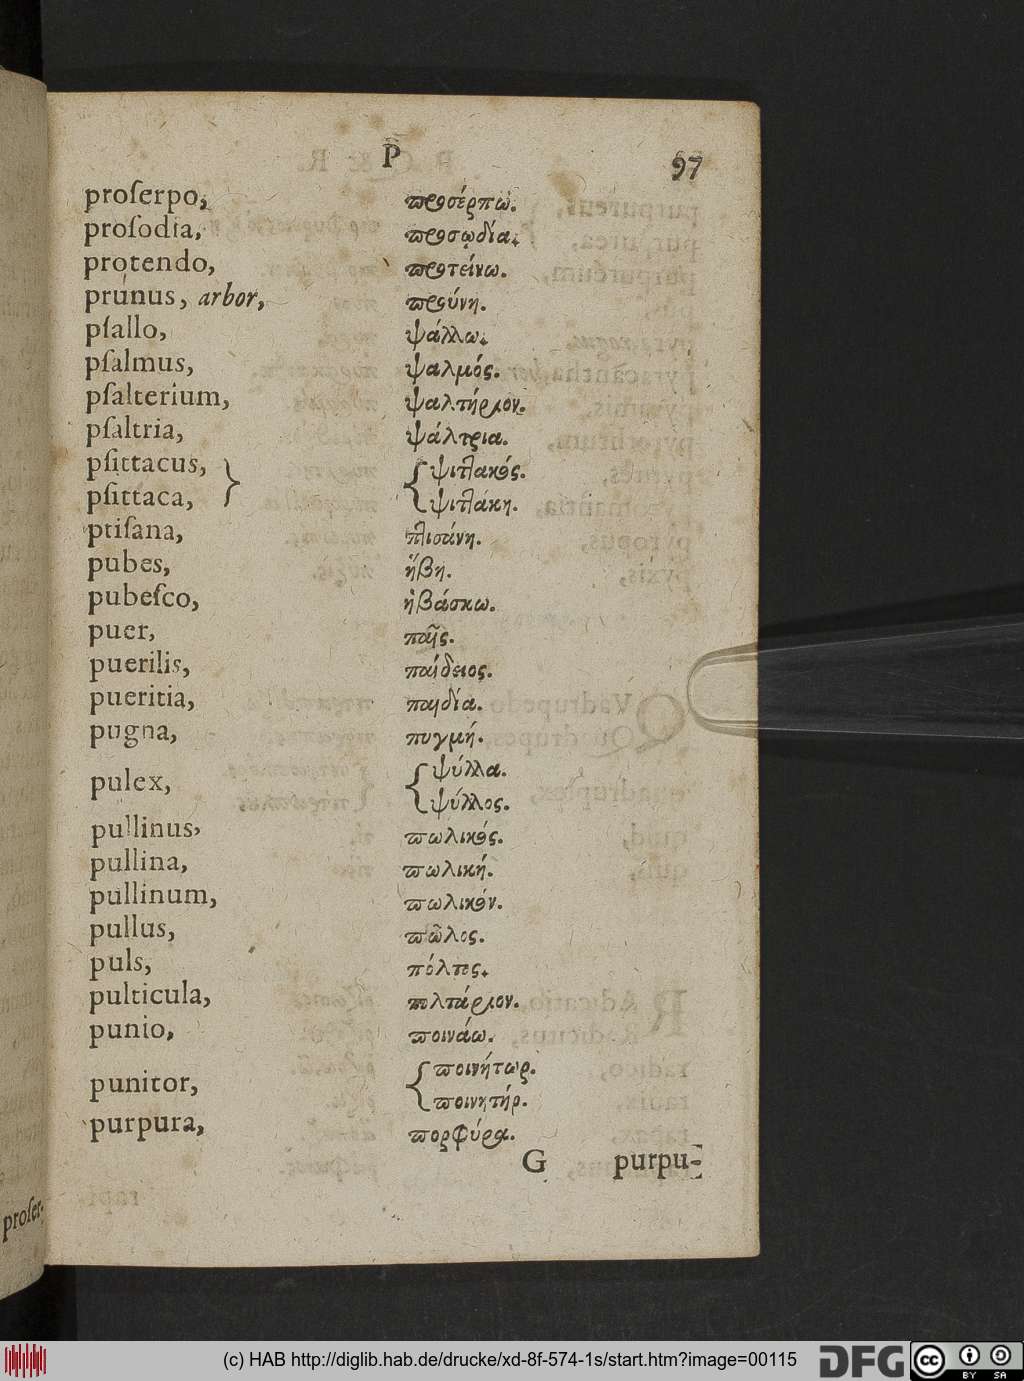 P
97
proſerpo, προσέρπω.
proſodia, προσῳδία.
protendo, προτείνω.
prúnus, arbor, προύνη.
pſallo, ψάλλω.
pſalmus, ψαλμός.
pſalterium, ψαλτήριον.
pſaltria, ψάλτρια.
pſittacus, ψιττακός.
pſittaca, ψιττάκη.
ptiſana, πτισάνη.
pubes, ἥβη.
pubeſco, ἡβάσκω.
puer, παῖς.
puerilis, παίδειος.
pueritia, παιδία.
pugna, πυγμή.
pulex, ψύλλα.
ψύλλος.
pullinus, πωλικός.
pullina, πωλική.
pullinum, πωλικόν.
pullus, πῶλος.
puls, πόλτος.
pulticula, πολτάριον.
punio, ποινάω.
punitor, ποινήτωρ.
ποινητήρ.
purpura, πορφύρα.
G purpu-
proſer-
(c) HAB http://diglib.hab.de/drucke/xd-8f-574-1s/start.htm?image=00115
DFG
cc BY SA